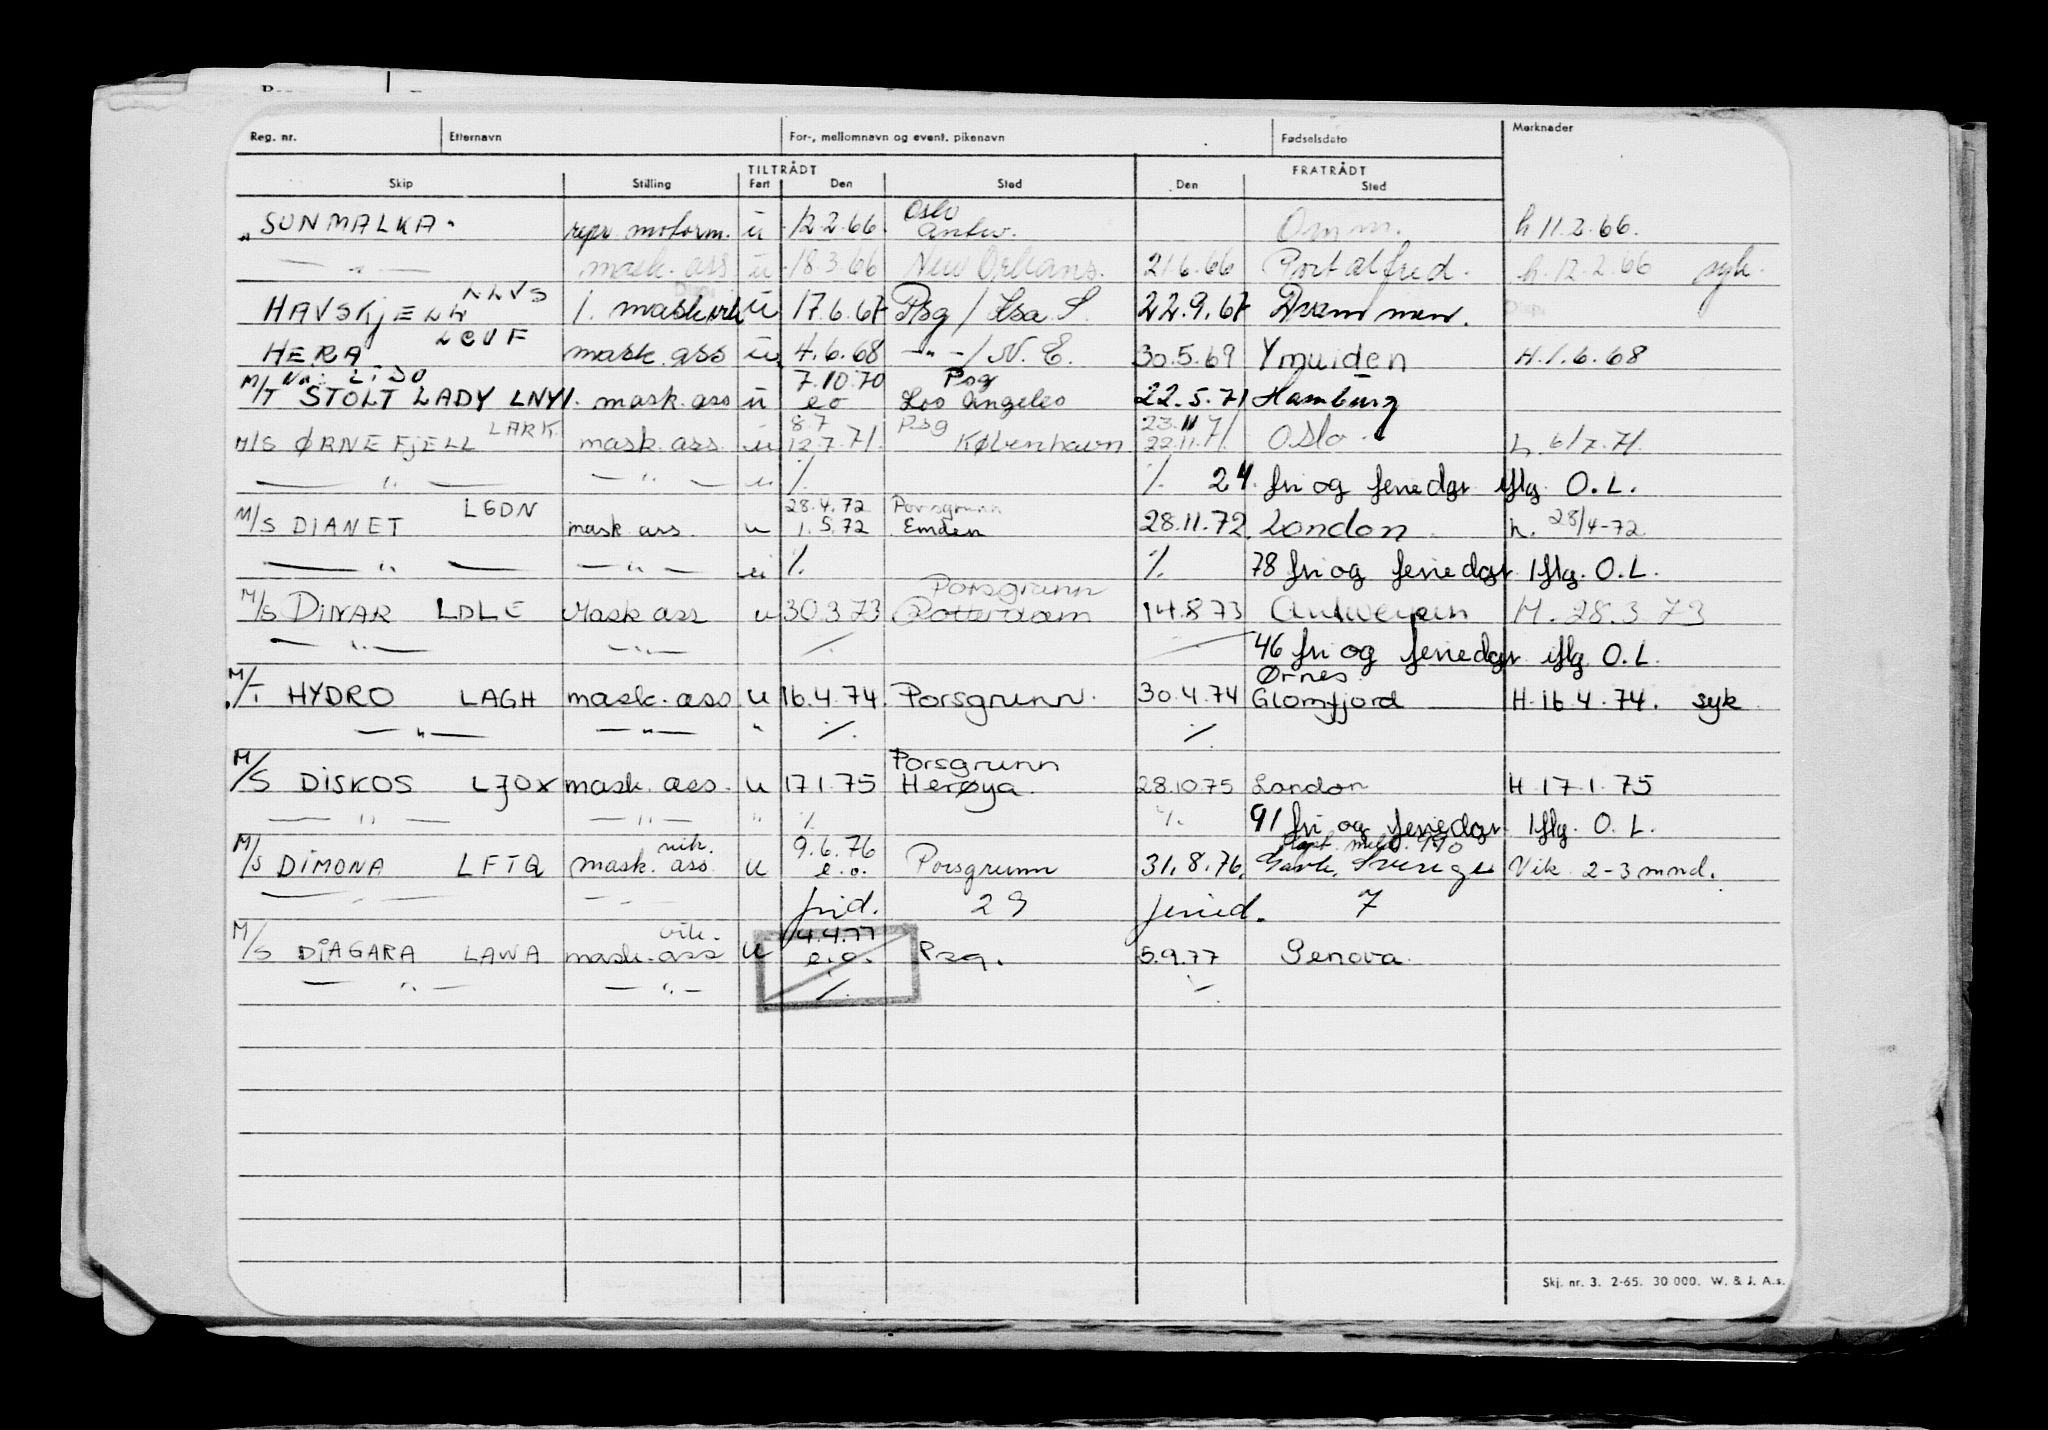 Reg. nr. Etternavn For-, mellomnavn og event. pikenavn Fødselsdato Merknader
TILTRÅDT FRATRÅDT
Skip Stilling Fart Den Sted Den Sted
„SUNMALKA" repr. motorm. u 12.2.66 Oslo Antw. Omm. h 11.2.66.
— " — mask. ass u 18.3.66 New Orleans. 21.6.66 Port Alfred. h. 12.2.66 syk.
HAVSKJELL LLVS 1. mask u 17.6.67 Psg / 22.9.67 Drammen.
HERA LCUF mask. ass u 4.6.68 —"—/ N. E. 30.5.69 Ymuiden H.1.6.68
M/T STOLT LADY LNYI. mask. ass u 7.10.70 e.o Psg Los Angeles 22.5.71 Hamburg
M/S ØRNEFJELL LARK mask. ass. u 8.7 12.7.71. Psg København 23.11.71 22.11.71. Oslo. h. 6/7.71.
— " — — " — u ./. ./. 24. fri og feriedgr iflg. O.L.
M/S DIANET LGDN mask ass. u 28.4.72 1.5.72 Porsgrunn Emden 28.11.72. London. h. 28/4-72
— " — — " — u ./. ./. 78 fri og feriedgr. Iflg. O.L.
M/S DINAR LDLE Mask ass u 30.3.73 Porsgrunn Rotterdam 14.8.73 Antwerpen H. 28.3.73
— " — — " — ./. 46 fri og feriedgr iflg. O.L.
M/T HYDRO LAGH mask. ass. u 16.4.74. Porsgrunn. 30.4.74 Ørnes. Glomfjord H. 16.4.74. syk
— " — — " — " ./. ./.
M/S DISKOS LJOX mask. ass. u 17.1.75 Porsgrunn Herøya. 28.10.75 London H. 17.1.75
— " — — " — " ./. ./. 91 fri og feriedgr. Iflg. O.L.
M/S DIMONA LFTQ mask. ass. vik. u 9.6.76 e.o. Porsgrunn 31.8.76. Gävle, Sverige Vik 2-3 mnd.
— " — — " — frid. 29 feried. 7
M/S DIAGARA LAWA mask. ass vik. u 4.4.77 e.o. Psg. 5.9.77 Genova.
— " — — " — ./. ./.
Skj. nr. 3. 2-65. 30 000. W. & J. A.s.